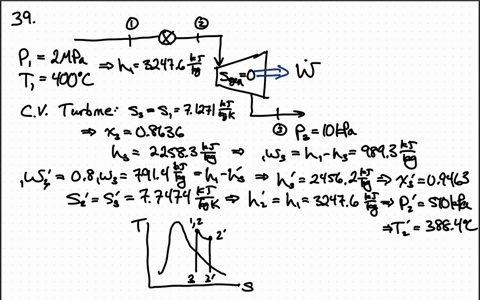 39.
① ②
P₁ = 2MPa ⇒ h₁ = 3247.6 kJ/kg
T₁ = 400°C
Sgen=0 ⇒ Ẇ
③
C.V. Turbine: S₃ = S₁ = 7.1271 kJ/kgK P₃ = 10kPa
⇒ x₃ = 0.8636
h₃ = 2258.3 kJ/kg ⇒ ₁w₃ = h₁-h₃ = 989.3 kJ/kg
₁w₃' = 0.8 ₁w₃ = 791.4 kJ/kg = h₁-h₃' ⇒ h₃' = 2456.2 kJ/kg ⇒ x₃' = 0.9463
S₂' = S₃' = 7.7474 kJ/kgK ⇒ h₂' = h₁ = 3247.6 kJ/kg ⇒ P₂' = 510kPa
⇒ T₂' = 388.4°C
T 1,2 2'
3 3' S